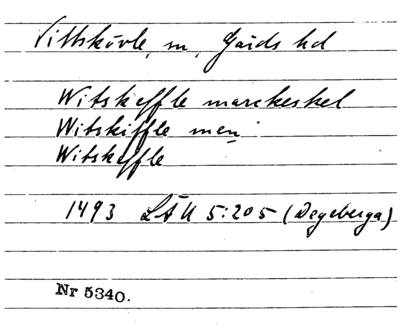 Vittskövle, sn, Gärds hd
Witskeffle marckeskel
Witskiffle men
Witskeffle
1493 LÄU 5:205 (Degeberga)
Nr 5340.